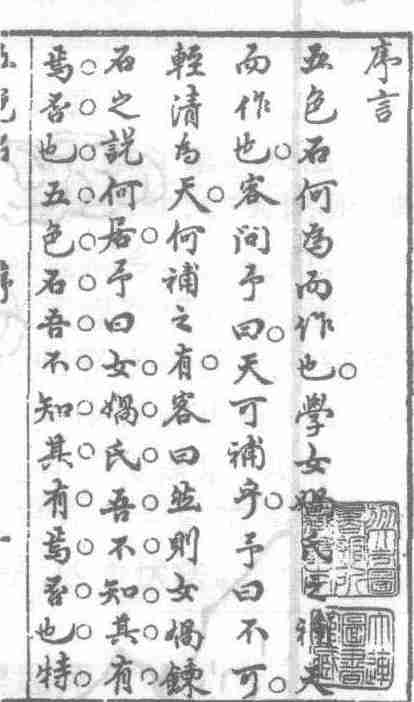 序言
五色石何為而作也學女媧氏之補天
而作也客問予曰天可補乎予曰不可
輕清為天何補之有客曰然則女媧鍊
石之說何居予曰女媧氏吾不知其有
焉否也五色石吾不知其有焉否也特